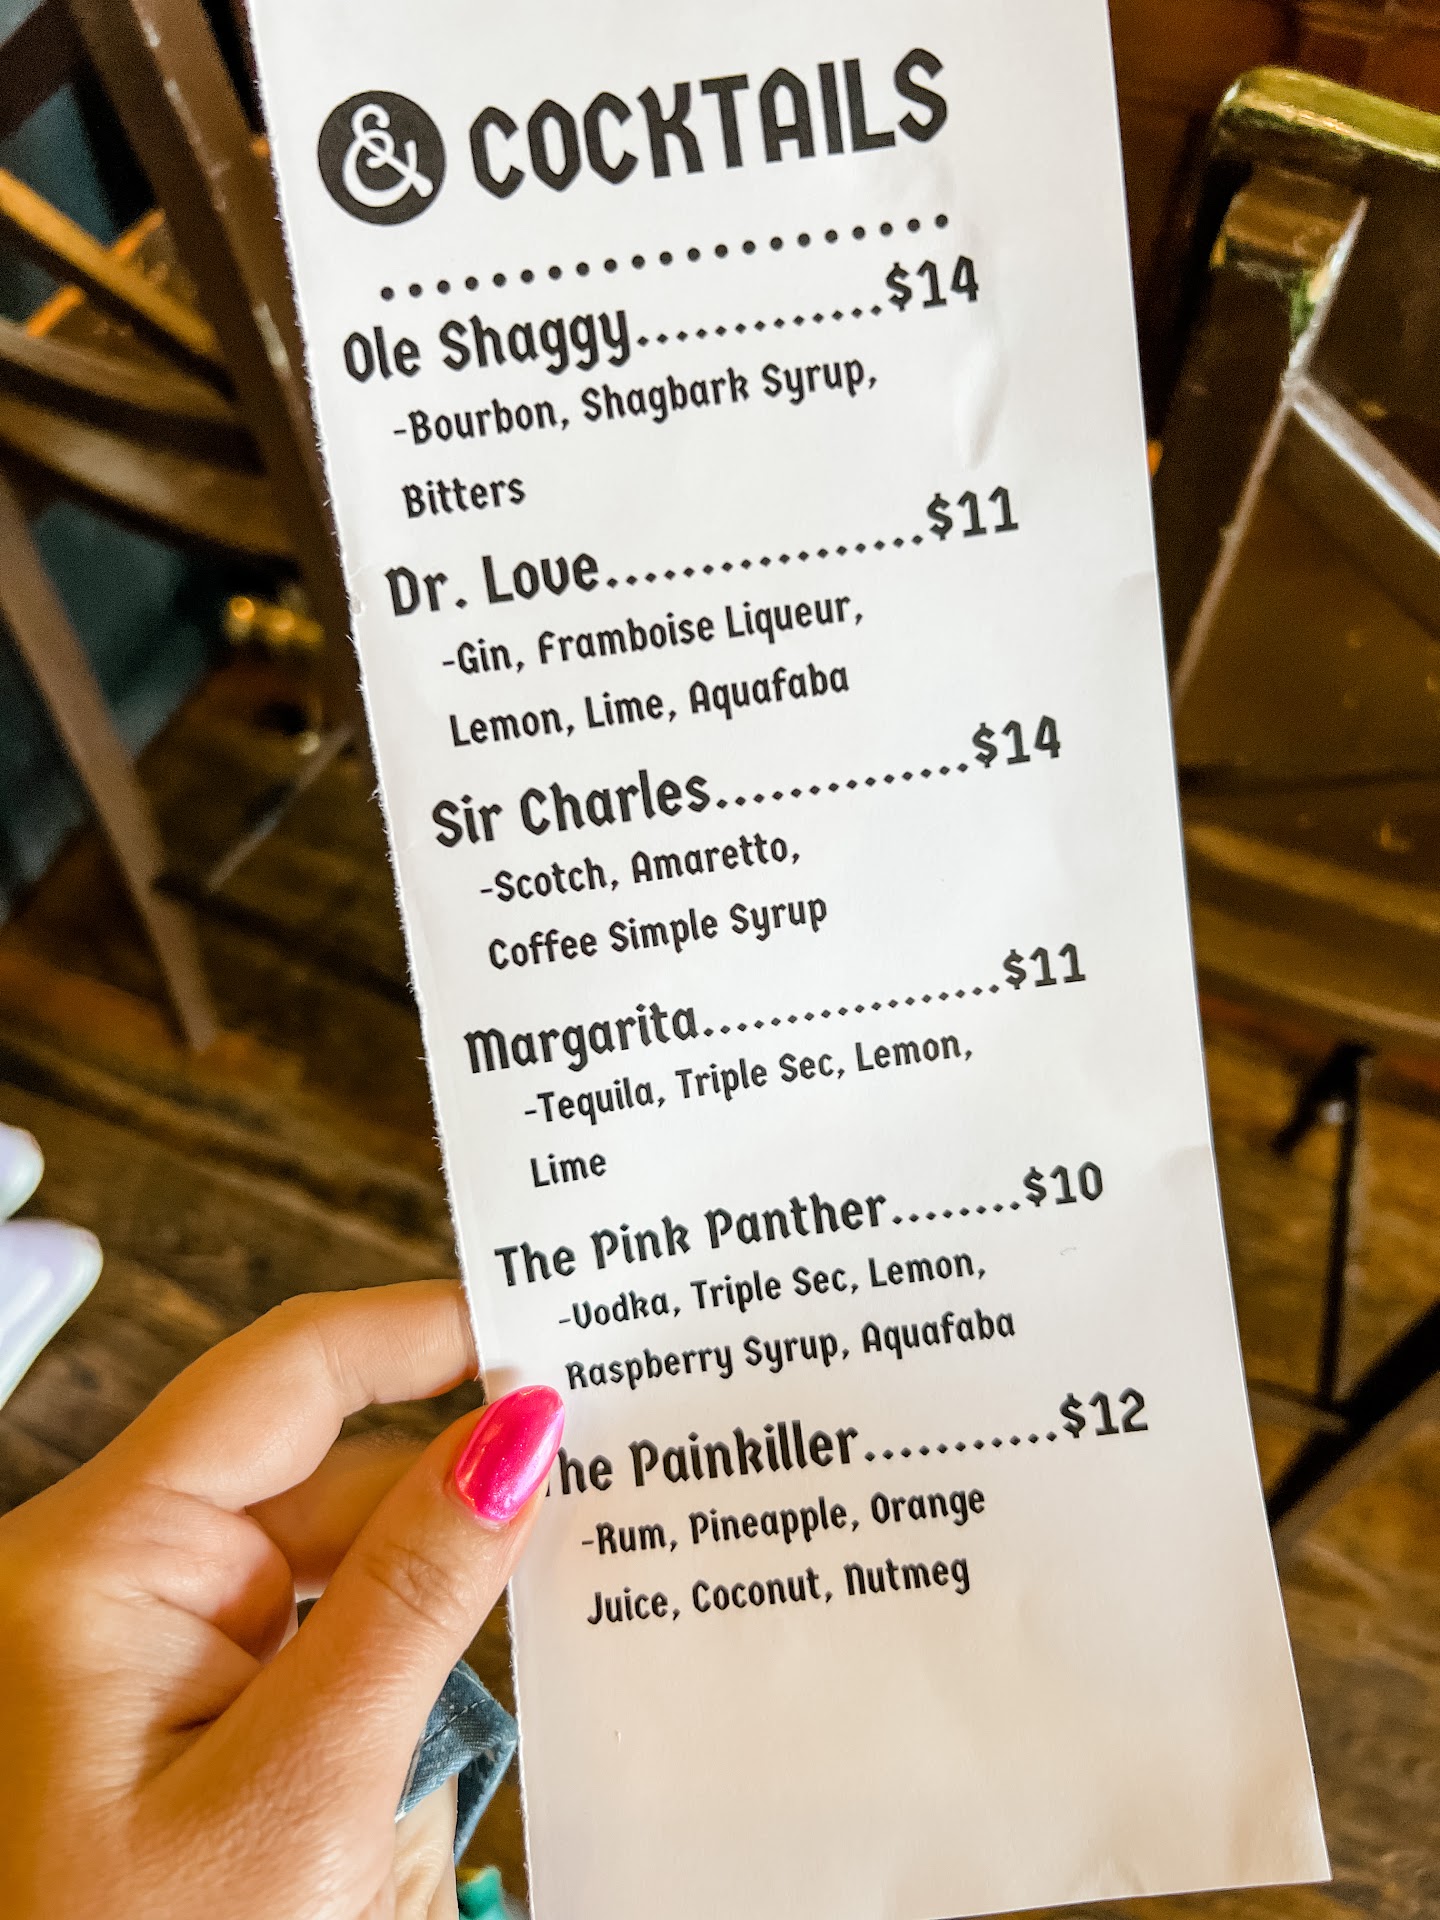 & COCKTAILS
Ole Shaggy.............$14
-Bourbon, Shagbark Syrup,
Bitters
Dr. Love.................$11
-Gin, Framboise Liqueur,
Lemon, Lime, Aquafaba
Sir Charles..............$14
-Scotch, Amaretto,
Coffee Simple Syrup
Margarita................$11
-Tequila, Triple Sec, Lemon,
Lime
The Pink Panther........$10
-Vodka, Triple Sec, Lemon,
Raspberry Syrup, Aquafaba
The Painkiller...........$12
-Rum, Pineapple, Orange
Juice, Coconut, Nutmeg